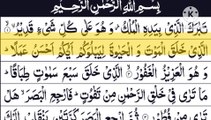 بِسْمِ اللّٰهِ الرَّحْمٰنِ الرَّحِيْمِ
تَبٰرَكَ الَّذِيْ بِيَدِهِ الْمُلْكُ وَ هُوَ عَلٰى كُلِّ شَيْءٍ قَدِيْرُ
الَّذِيْ خَلَقَ الْمَوْتَ وَ الْحَيٰوةَ لِيَبْلُوَكُمْ اَيُّكُمْ اَحْسَنُ عَمَلًا
وَ هُوَ الْعَزِيْزُ الْغَفُوْرُ الَّذِيْ خَلَقَ سَبْعَ سَمٰوٰتٍ طِبَاقًا
مَا تَرٰى فِيْ خَلْقِ الرَّحْمٰنِ مِنْ تَفٰوُتٍ فَارْجِعِ الْبَصَرَ هَلْ